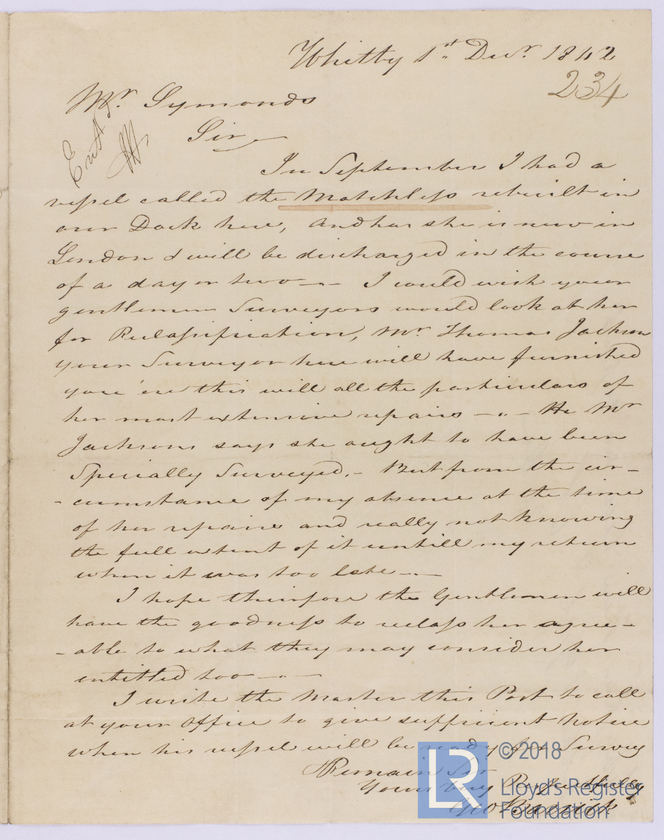 Whitby 1st Decr. 1842
234
Mr. Symonds
Sir
In September I had a
vessel called the Matchless rebuilt in
our Dock here, and as she is now in
London & will be discharged in the course
of a day or two — I would wish your
gentlemen Surveyors would look at her
for Reclassification, Mr Thomas Jackson
your Surveyor here will have furnished
you 'ere this will all the particulars of
her most extensive repairs — . — He Mr
Jacksons says she ought to have been
Specially Surveyed. — But from the cir-
-cumstance of my absence at the time
of her repairs and really not knowing
the full extent of it untill my return
when it was too late —
I hope therefore the Gentlemen will
have the goodness to reclass her agree-
-able to what they may consider her
entitled too —
I write the Master this Post to call
at your Office to give sufficient Notice
when his vessel will be ready for Survey
I Remain Sir
Your
© 2018
LR
Lloyd's Register
Foundation